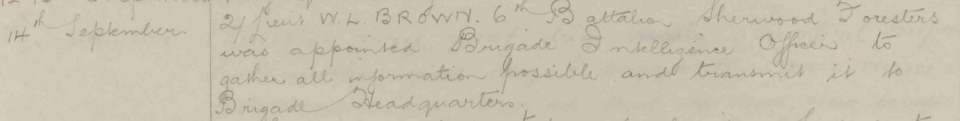 14th September.
2/Lieut W.L. BROWN. 6th Battalion Sherwood Foresters
was appointed Brigade Intelligence Officer to
gather all information possible and transmit it to
Brigade Headquarters.